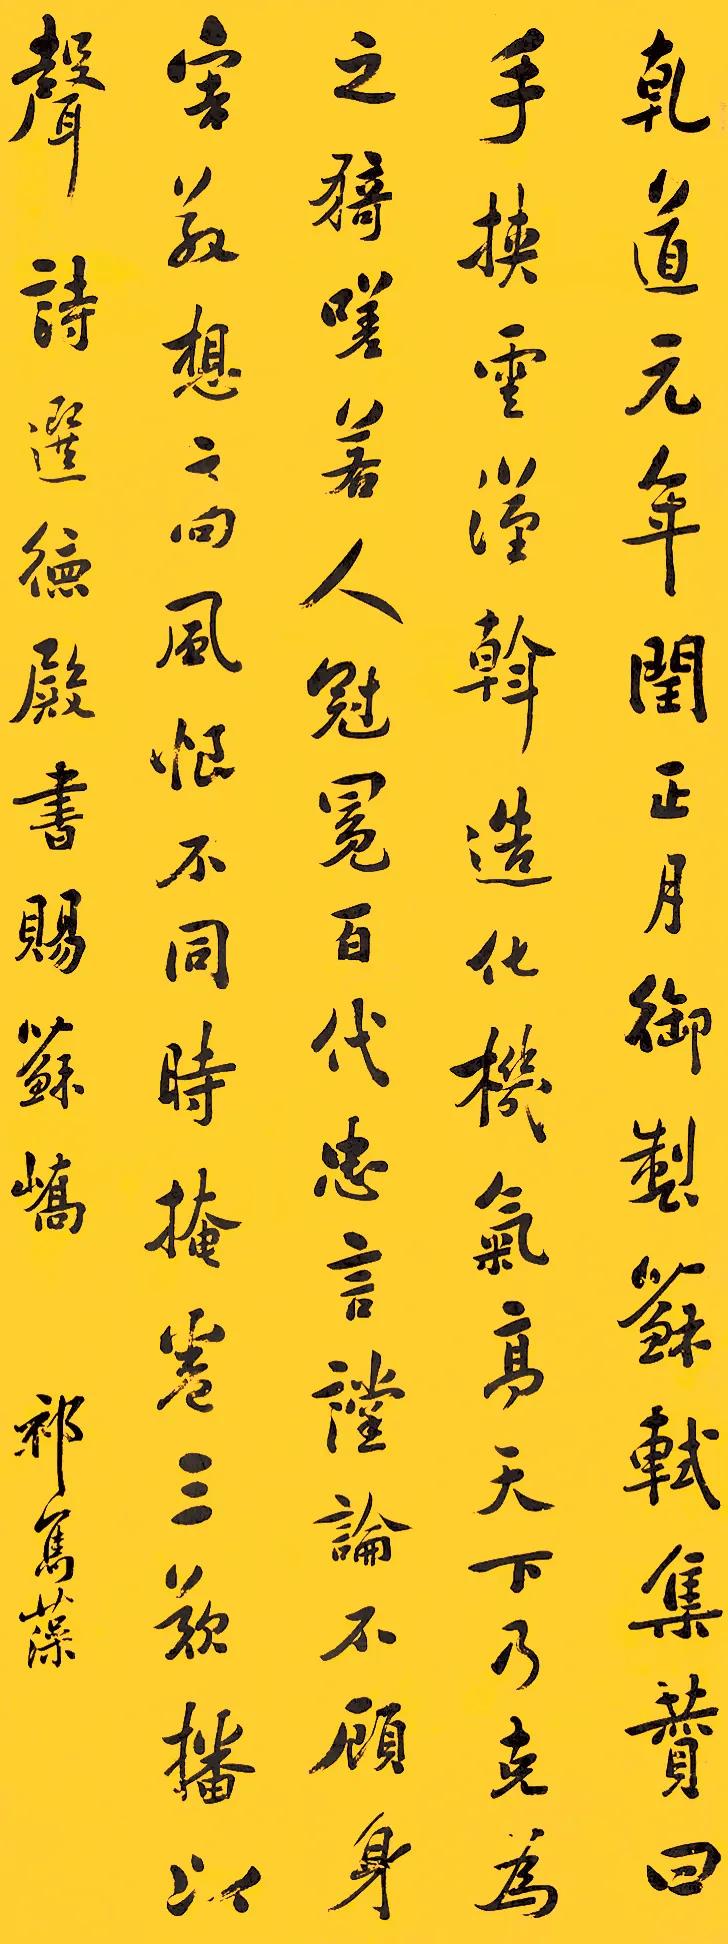 乾道元年閏正月御製蘇軾集贊曰
手抉雲漢斡造化機氣高天下乃克為
之猗嗟若人冠冕百代忠言讜論不顧身
害敬想高風恨不同時掩卷三歎播以
聲詩選德殿書賜蘇嶠 祁寯藻